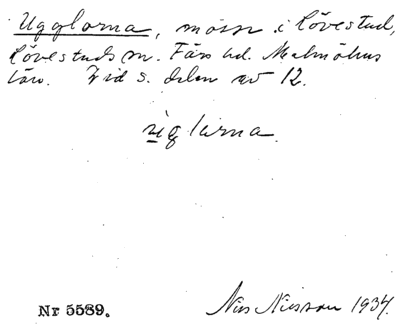 Ugglorna, mosse i Lövestad,
Lövestads sn. Färs hd. Malmöhus
län. Vid s. delen av 12.
uglårna.
Nr 5589. Nils Nilsson 1934.